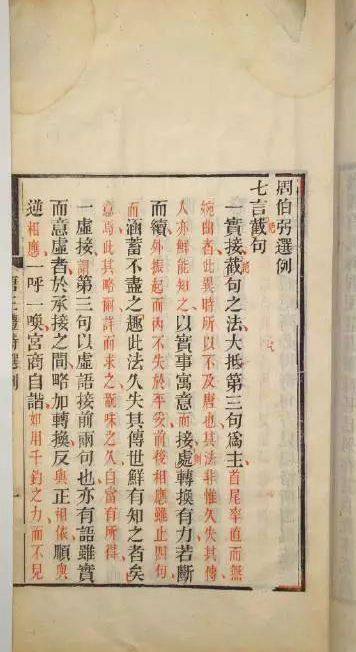 周伯弜選例
七言截句
一實接截句之法大抵第三句爲主首尾率直而無
婉曲者此異時所以不及唐也其法非惟久失其傳
人亦鮮能知之以實事寓意而接處轉換有力若斷
而續外振起而內不失於平妥前後相應雖止四句
而涵蓄不盡之趣此法久失其傳世鮮有知之者矣
意焉此其略爾詳而求之翫味之久自當有所得
一虛接謂第三句以虛語接前兩句也亦有語雖實
而意虛者於承接之間略加轉換反與正相依順與
逆相應一呼一喚宮商自諧如用千鈞之力而不見
唐三體詩選例